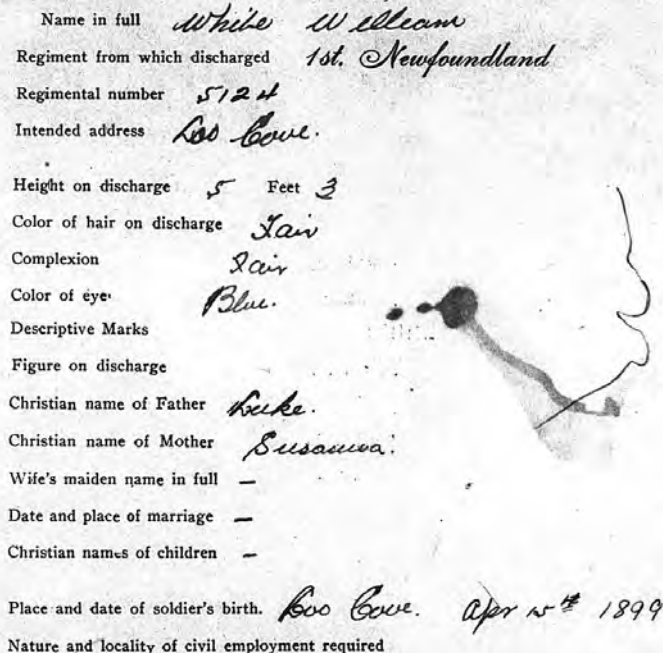 Name in full White William
Regiment from which discharged 1st. Newfoundland
Regimental number 5124
Intended address Loo Cove.
Height on discharge 5 Feet 3
Color of hair on discharge Fair
Complexion Fair
Color of eye Blue.
Descriptive Marks
Figure on discharge
Christian name of Father Luke.
Christian name of Mother Susanna.
Wife's maiden name in full —
Date and place of marriage —
Christian names of children —
Place and date of soldier's birth. Loo Cove. Apr 15th 1899
Nature and locality of civil employment required